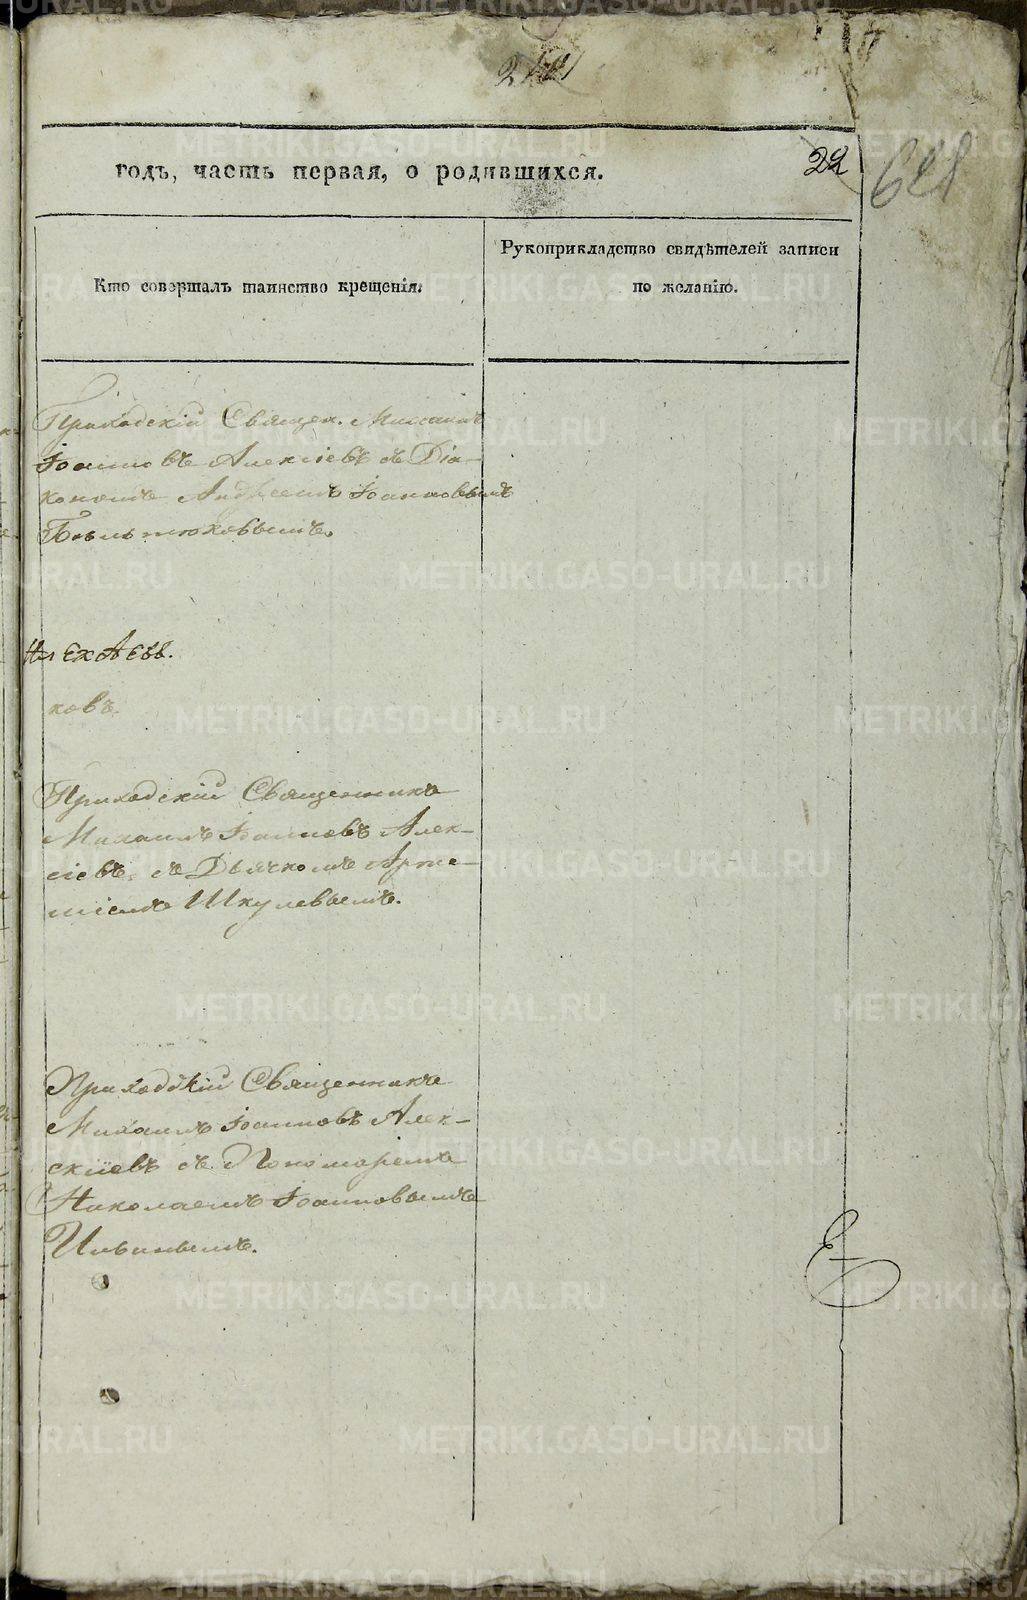 годъ, часть первая, о родившихся.
22
Кто совершалъ таинство крещенія.
Рукоприкладство свидѣтелей записи
по желанію.
Приходскій Священ. Михаилъ
Іоанновъ Алексіевъ съ Діа-
кономъ Андреемъ Іоанновымъ
Бѣльтюковымъ.
ковъ.
Приходскій Священникъ
Михаилъ Іоанновъ Алек-
сіевъ, съ Дьячкомъ Арте-
міемъ Шкулевымъ.
Приходскій Священникъ
Михаилъ Іоанновъ Алек-
сѣіевъ съ Пономаремъ
Николаемъ Іоанновымъ
Ильинымъ.
METRIKI.GASO-URAL.RU